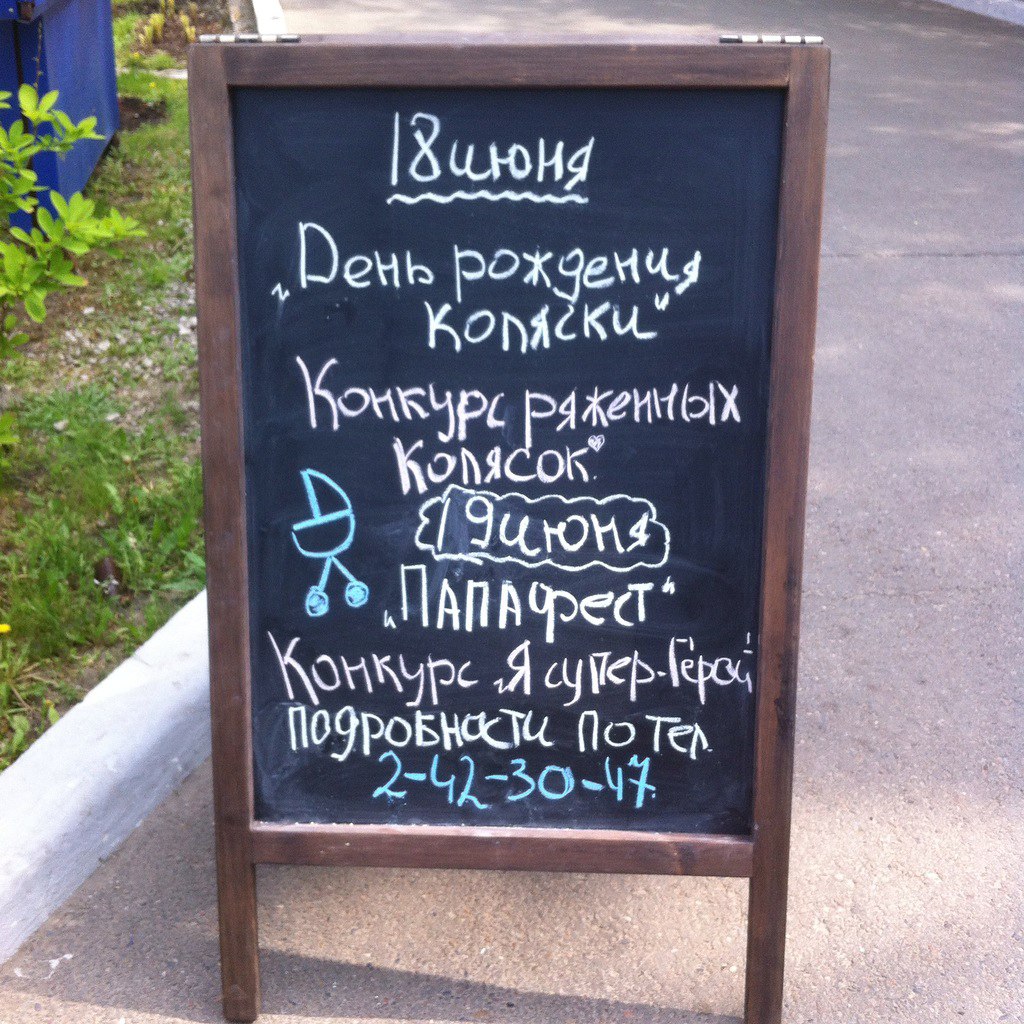 18 июня
„День рождения
коляски"
Конкурс ряженных
колясок
19 июня
„ПАПАфест"
Конкурс „Я супер-Герой"
подробности по тел.
2-42-30-47